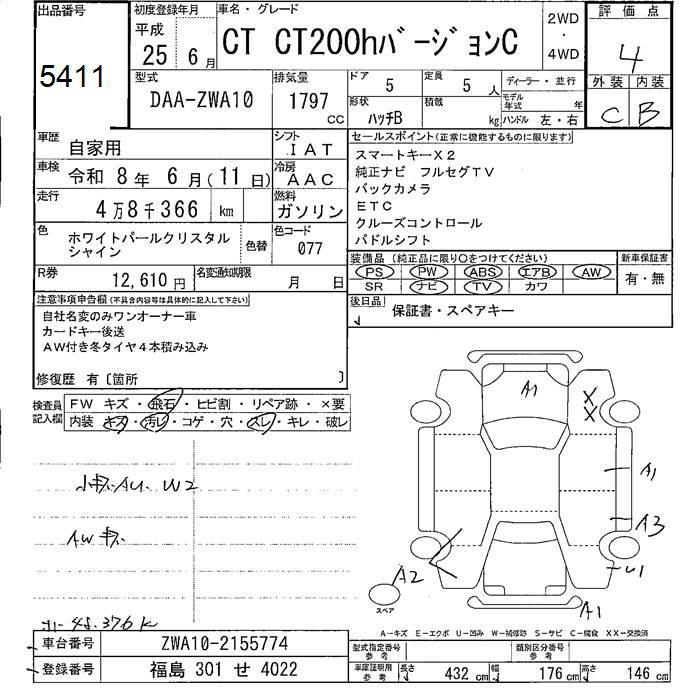 出品番号
5411
初度登録年月
平成
25 6月
車名・グレード
CT CT200hﾊﾞｰｼﾞｮﾝC
2WD
・
4WD
評価点
4
外装 内装
C B
型式
DAA-ZWA10
排気量
1797
CC
ドア
5
定員
5 人
形状
ﾊｯﾁB
積載
kg
ディーラー・並行
モデル年式 年
ハンドル 左・右
車歴
自家用
シフト
IAT
車検
令和 8年 6月(11日)
冷房
AAC
走行
4万8千366 km
燃料
ガソリン
色
ホワイトパールクリスタル
シャイン
色替
色コード
077
R券
12,610円
名変通知期限
月 日
セールスポイント(正常に機能するものに限ります)
スマートキーX2
純正ナビ フルセグTV
バックカメラ
ETC
クルーズコントロール
パドルシフト
装備品 (純正品に限り○をつけてください)
PS PW ABS エアB AW
SR ナビ TV カワ
新車保証書
有・無
後日品
保証書・スペアキー
注意事項申告欄(不具合内容等は具体的に記入して下さい)
自社名変のみワンオーナー車
カードキー後送
AW付き冬タイヤ4本積み込み
修復歴 有〔箇所 〕
検査員
記入欄
FW キズ・飛石・ヒビ割・リペア跡・×要
内装 キズ・汚レ・コゲ・穴・スレ・キレ・破レ
小キズ AU. W2
AWキズ
48,376K
A1
X
X
A1
A3
U1
A2
A1
スペア
A-キズ E-エクボ U-凹み W-補修跡 S-サビ C-腐食 XX-交換済
車台番号
ZWA10-2155774
登録番号
福島 301 せ 4022
型式指定番号
参考
類別区分番号
参考
車庫証明用
参考
長さ 432 cm 幅 176 cm 高さ 146 cm